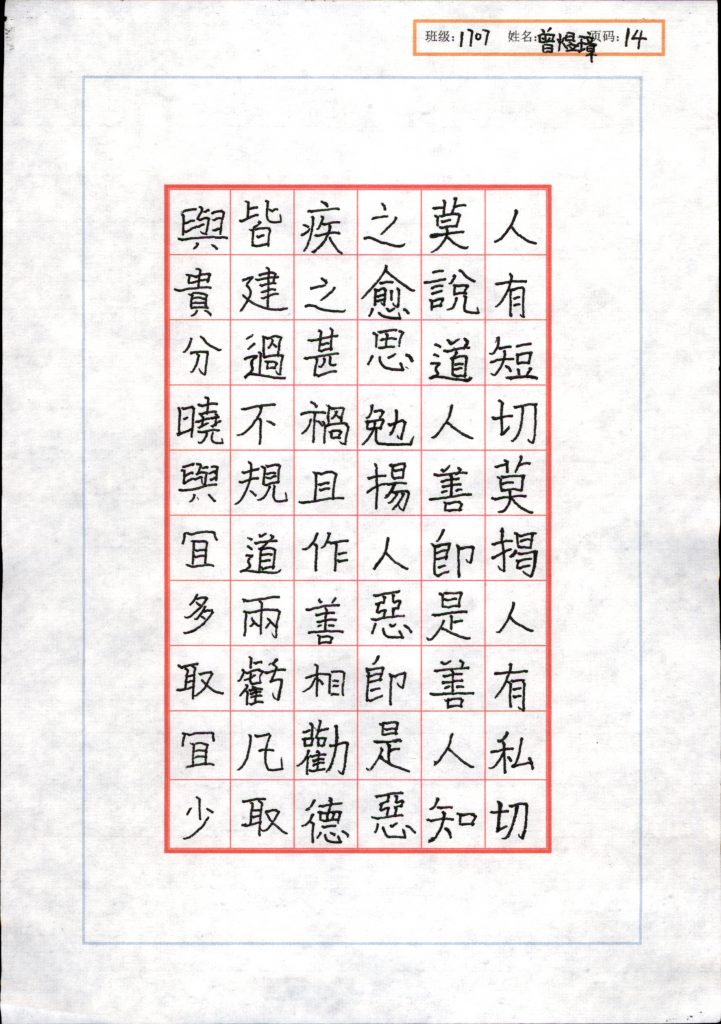 班级:1707 姓名:曾煜璋 页码:14
人有短切莫揭人有私切
莫說道人善即是善人知
之愈思勉揚人惡即是惡
疾之甚禍且作善相勸德
皆建過不規道兩虧凡取
與貴分曉與宜多取宜少